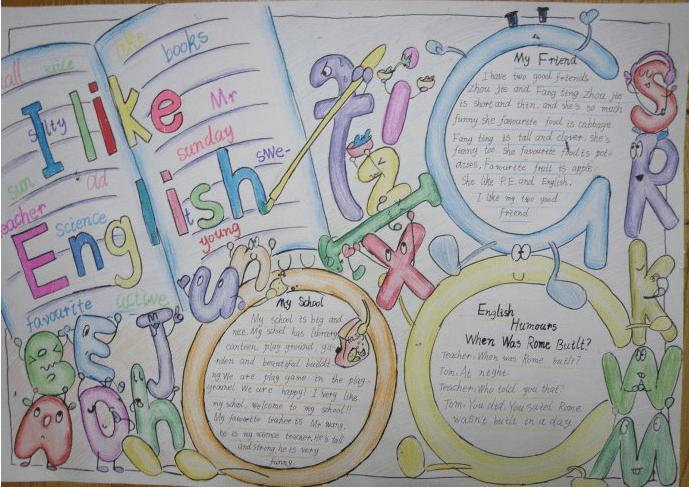 I like
English
tall
nice
like
books
salty
Mr
sunday
sun
ad
swe-
teacher
science
young
favourite
active
My Friend
I have two good friends
Zhou jie and Fang ting Zhou jie
is short and thin. and she's so much
funny she favourite food is cabbage.
Fang ting is tall and clever. she's
funny too. She favourite food is pot-
atoes, Favourite fruit is apple.
She like P.E. and English.
I like my two good
friend.
My School
My school is big and
nice. My school has library
canteen play ground, ga-
rden and beautiful buildi
ng We are play game in the play-
ground. We are happy! I very like
my school. welcome to my school!!
My favourite teacher is Mr Wang,
he is my science teacher. He's tall
and strong, he is very
funny.
English
Humours
When Was Rome Built?
Teacher: When was Rome built?
Tom: At night.
Teacher: Who told you that?
Tom: You did. You said Rome
wasn't built in a day.
t
i
z
t
x
u
n
B
E
J
A
O
h
G
S
R
k
W
M